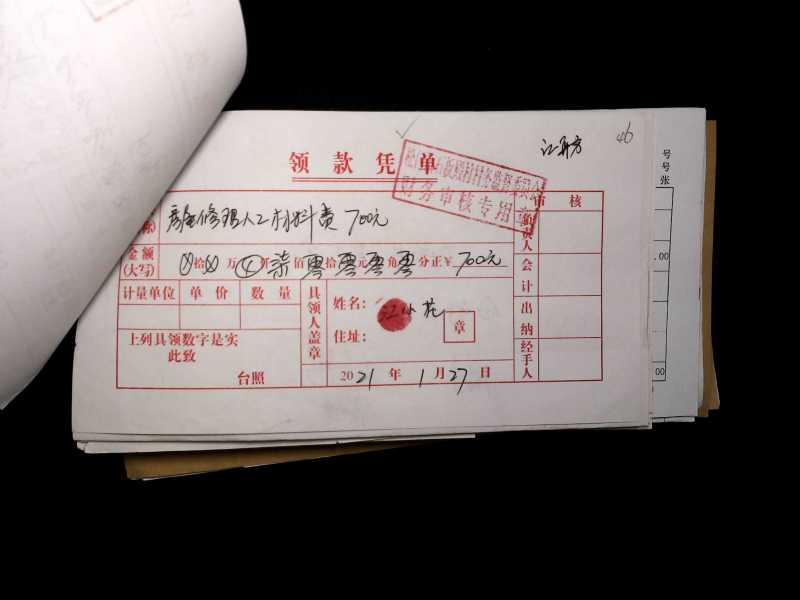 46
领款凭单
财务审核专用章
审核
称) 房屋修理人工材料费 700元
负责人
金额(大写) ⊗拾⊗万⊗仟柒佰零拾零元零角零分正¥700元
会计
计量单位 单价 数量
具领人盖章
姓名: 江小花
出纳
住址: 章
上列具领数字是实
此致
经手人
台照
2021年1月27日
号
号
张
.00
00